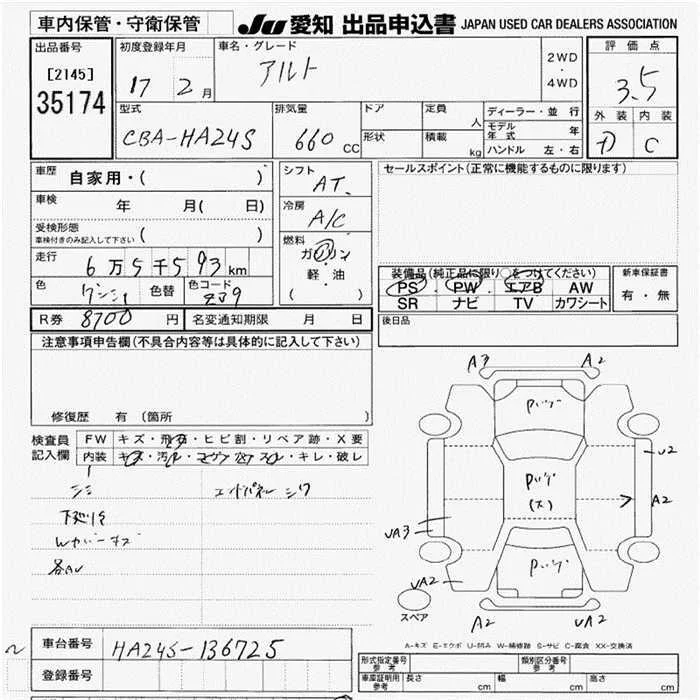 車内保管・守衛保管
JU 愛知 出品申込書 JAPAN USED CAR DEALERS ASSOCIATION
出品番号 初度登録年月 車名・グレード 評価点
[2145]
35174
17 2月
アルト
2WD
・
4WD
3.5
外装 内装
D C
型式 排気量 ドア 定員 人 ディーラー・並行
CBA-HA24S 660CC
形状 積載 kg
モデル年式 年
ハンドル 左・右
車歴 自家用・( )
シフト AT
セールスポイント(正常に機能するものに限ります)
車検 年 月( 日)
冷房 A/C
受検形態 ( )
車検付きのみ記入して下さい
燃料 ガソリン
・
軽・油
( )
走行 6万5千593km
装備品(純正品に限り○をつけてください) 新車保証書
PS・PW・エアB AW
SR ナビ TV カワシート
有・無
色 色替 色コード
R券 8700円 名変通知期限 月 日
後日品
注意事項申告欄(不具合内容等は具体的に記入して下さい)
修復歴 有(箇所 )
検査員記入欄
FW キズ・飛石・ヒビ割・リペア跡・X要
内装 キズ・汚れ・コゲ穴・ネジ穴・スレ・キレ・破レ
シミ エンドパネル シワ
下廻りS
Wカバーキズ
各AU
A3 A2
U2
A2
UA3
UA2
A2 UA2
スペア
A-キズ E-エクボ U-凹み W-補修跡 S-サビ C-腐食 XX-交換済
車台番号 HA24S-136725
登録番号
形式指定番号 参考 類別区分番号 参考
車庫証明用 参考 長さ cm 幅 cm 高さ cm